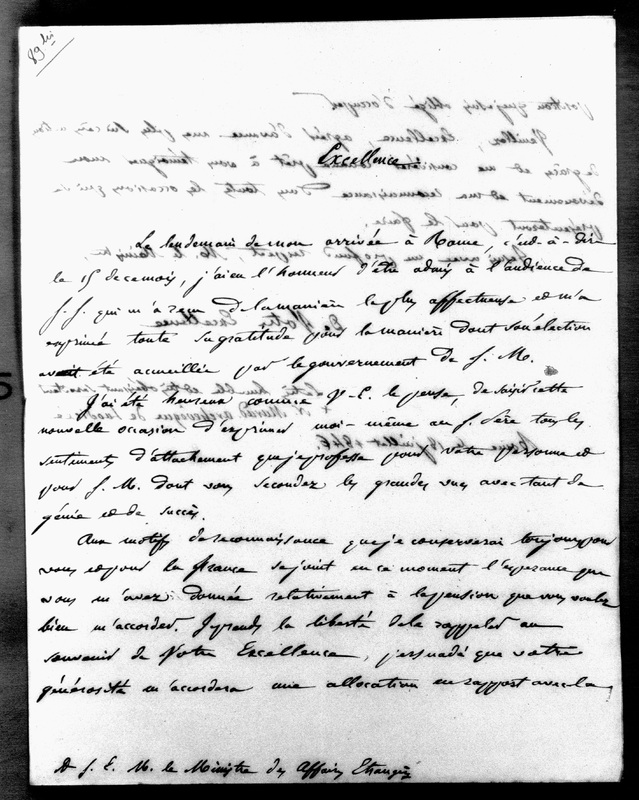 89 bis
Excellence
Le lendemain de mon arrivée à Rome, c'est-à-dire
le 15 de ce mois, j'ai eu l'honneur d'être admis à l'audience de
S. S. qui m'a reçu de la manière la plus affectueuse et m'a
exprimé toute sa gratitude pour la manière dont son élection
avait été accueillie par le gouvernement de S. M.
J'ai été heureux comme V. E. le pense, de saisir cette
nouvelle occasion d'exprimer moi-même au S. Père tous les
sentiments d'attachement que je professe pour votre personne et
pour S. M. dont vous secondez les grandes vues avec tant de
génie et de succès.
Aux motifs de reconnaissance que je conserverai toujours pour
vous et pour la France se joint en ce moment l'espérance que
vous m'avez donnée relativement à la pension que vous voulez
bien m'accorder. Je prends la liberté de la rappeler au
souvenir de Votre Excellence, persuadé que votre
générosité m'accordera une allocation en rapport avec la
A S. E. M. le Ministre des Affaires Etrangères